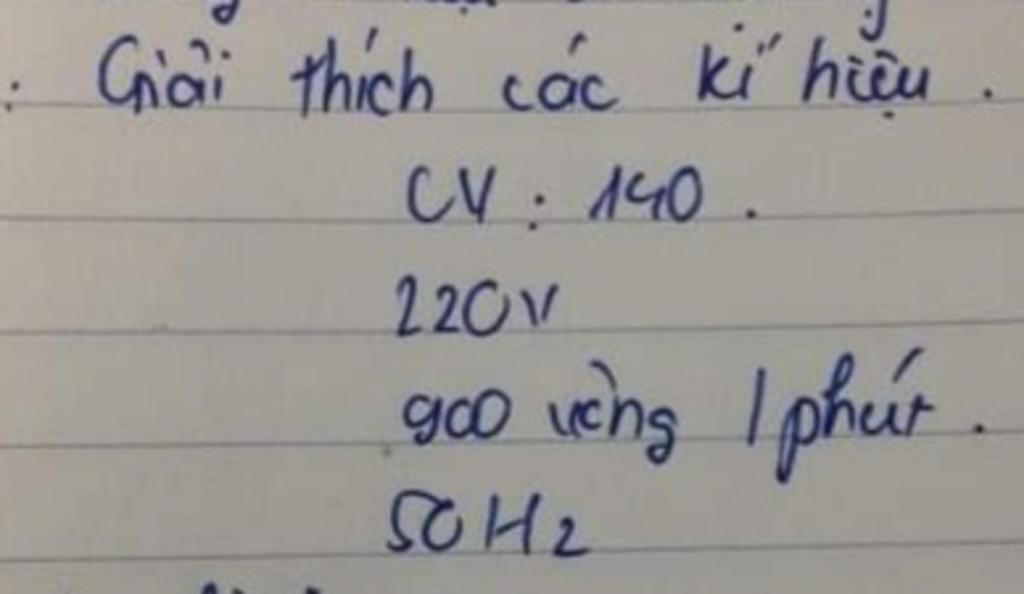 : Giải thích các kí hiệu .
CV : 140 .
220V
900 vòng / phút .
50 Hz